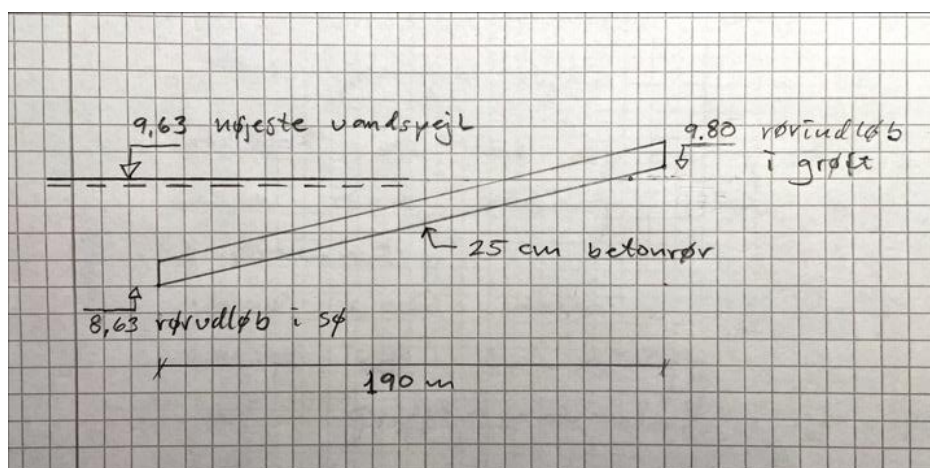 9,63 højeste vandspejl
9.80 rørindløb
i grøft
25 cm betonrør
8,63 rørudløb i sø
190 m